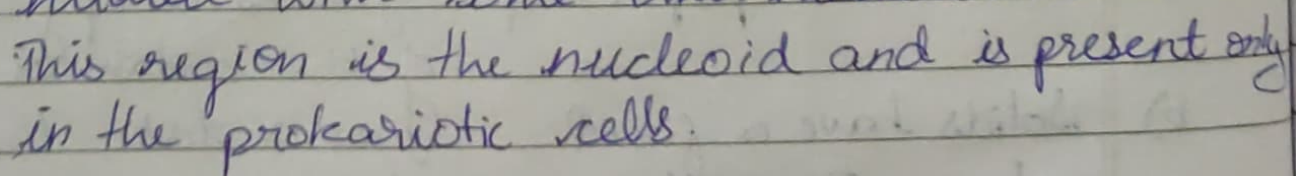 This region is the nucleoid and is present only
in the prokariotic cells.